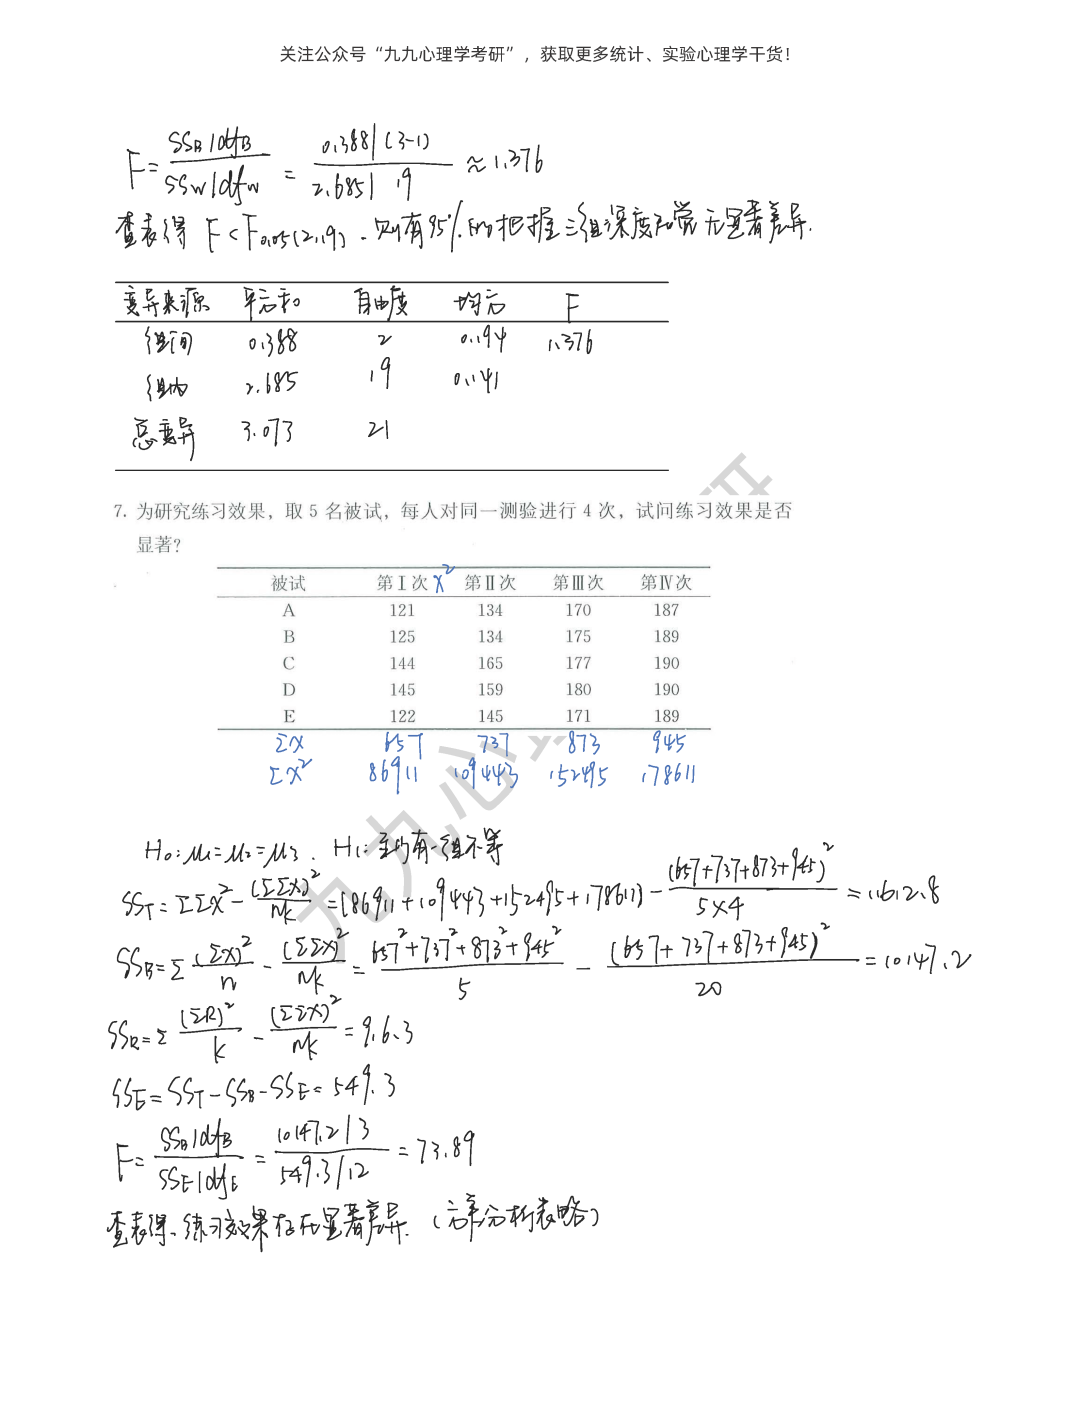 关注公众号“九九心理学考研”，获取更多统计、实验心理学干货！
F = (SSB/dfB)/(SSW/dfW) = (0.388/(3-1))/(2.685/19) ≈ 1.376
查表得 F < F0.05(2,19)、则有95%的把握三组深度知觉无显著差异.
变异来源 平方和 自由度 均方 F
组间 0.388 2 0.194 1.376
组内 2.685 19 0.141
总变异 3.073 21
7. 为研究练习效果，取 5 名被试，每人对同一测验进行 4 次，试问练习效果是否
显著？
被试 第Ⅰ次 X² 第Ⅱ次 第Ⅲ次 第Ⅳ次
A 121 134 170 187
B 125 134 175 189
C 144 165 177 190
D 145 159 180 190
E 122 145 171 189
ΣX 657 737 873 945
ΣX² 86911 109443 152495 178611
H0: μ1=μ2=μ3、H1: 至少有一组不等
SST = ΣΣX² - (ΣΣX)²/nk = (86911+109443+152495+178611) - (657+737+873+945)²/5×4 = 11612.8
SSB = Σ (ΣX)²/n - (ΣΣX)²/nk = (657²+737²+873²+945²)/5 - (657+737+873+945)²/20 = 10147.2
SSR = Σ (ΣR)²/k - (ΣΣX)²/nk = 916.3
SSE = SST - SSB - SSE = 549.3
F = (SSB/dfB)/(SSE/dfE) = (10147.2/3)/(549.3/12) = 73.89
查表得、练习效果存在显著差异.（方差分析表略）
九九心
研